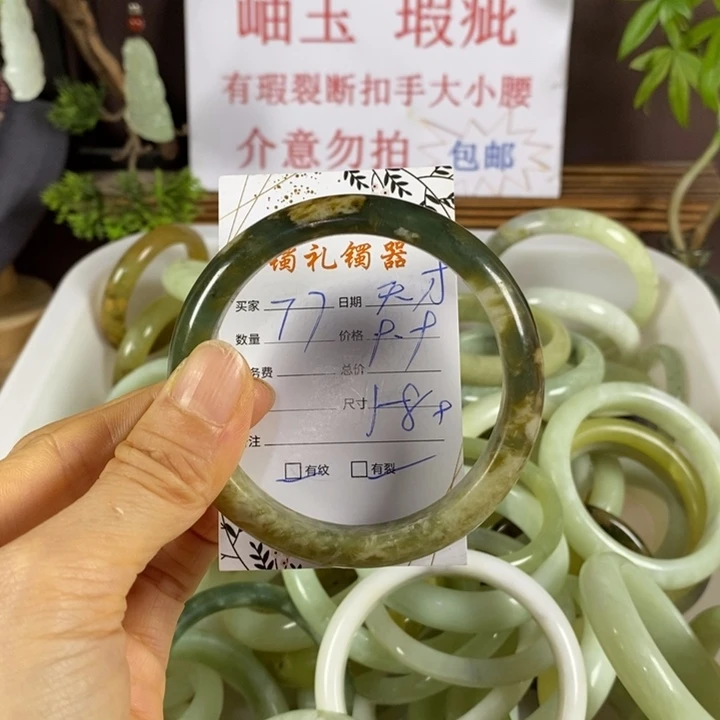 岫玉 瑕疵
有瑕裂断扣手大小腰
介意勿拍 包邮
镯礼镯器
买家 77 日期 天才
数量 价格 9.9
务费 总价
尺寸 58
注
有纹 有裂